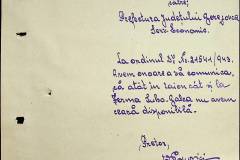 către,
Prefectura Județului Berezovca
Serv. Economic.
La ordinul Dv. No. 21541/943.
Avem onoare a vă comunica,
că atât în raion cât și la
Ferma Subo. Galea nu avem
ceară disponibilă.
Pretor,